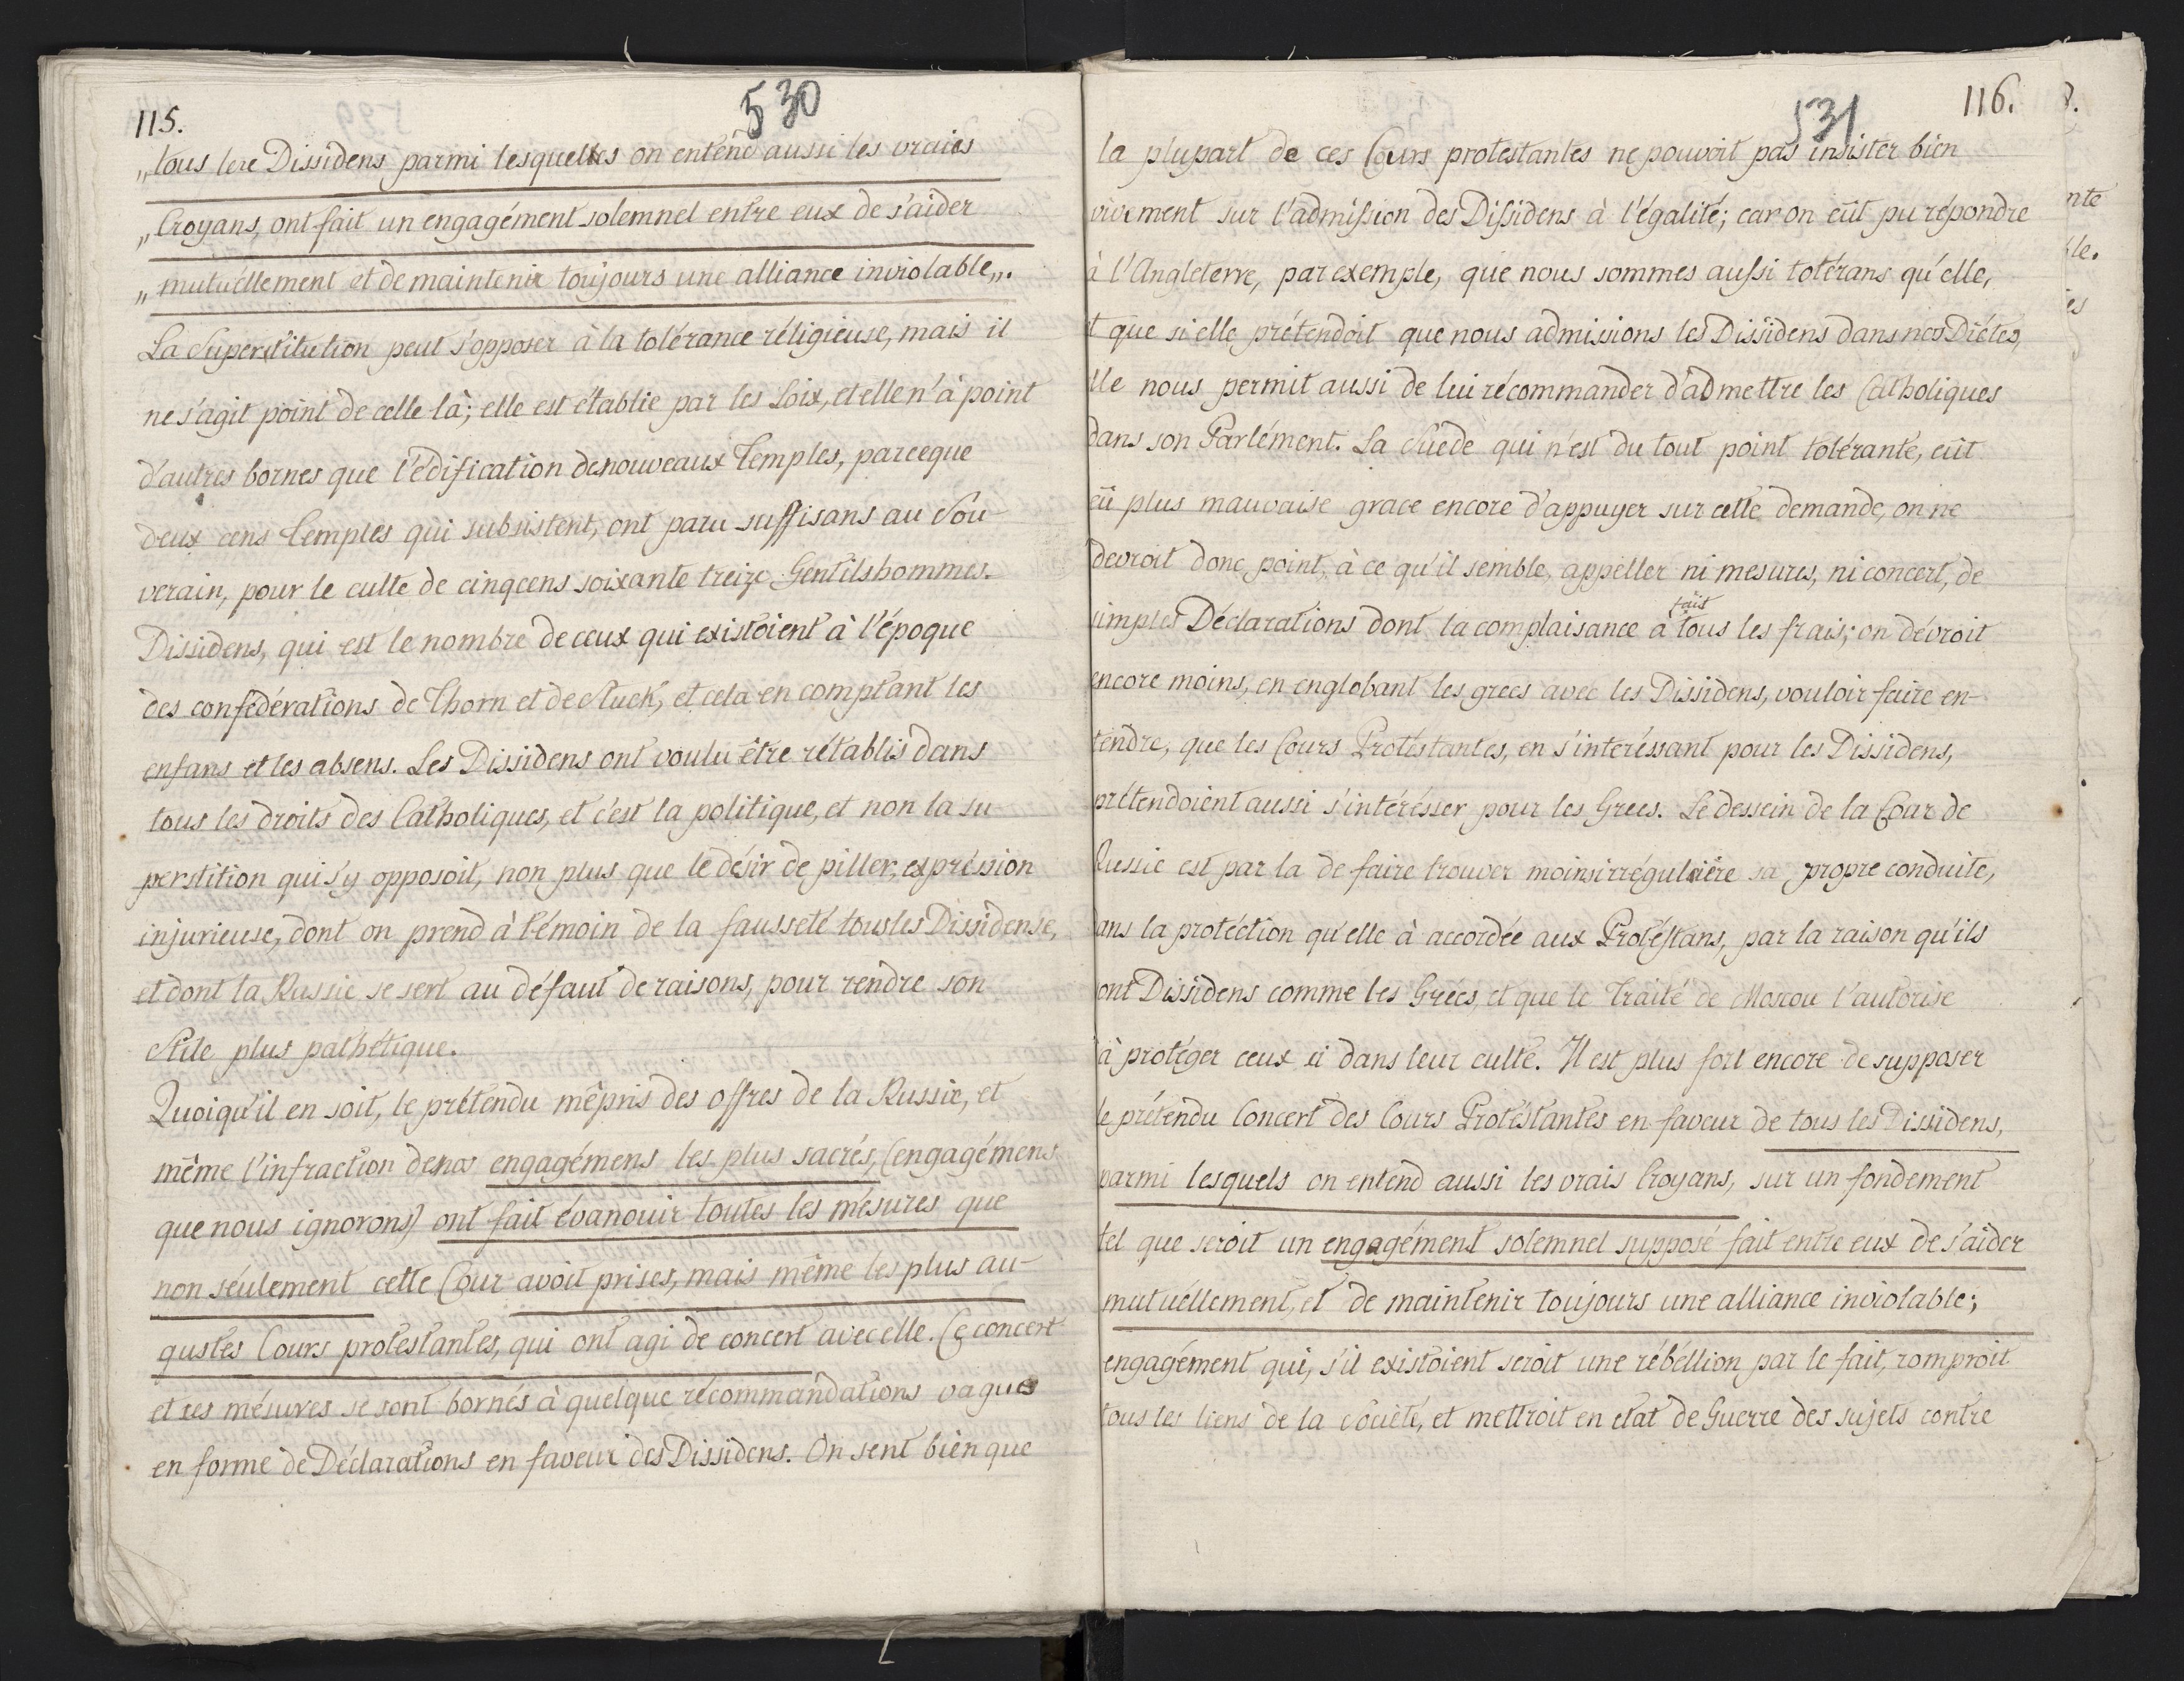 115.
530
„tous lese Dissidens parmi lesquelles on entend aussi les vraies
„Croyans, ont fait un engagément solemnel entre eux de s'aider
„mutuéllement et de maintenir toujours une alliance inviolable„.
La Superstitution peut s'opposer à la tolérance réligieuse, mais il
ne s'agit point de celle là; elle est établie par les Loix, et elle n'à point
d'autres bornes que l'édification de nouveaux Temples, parceque
deux cens Temples qui subsistent, ont paru suffisans au Sou-
verain, pour le culte de cinqcens soixante treize Gentilshommes-
Dissidens, qui est le nombre de ceux qui existoient à l'époque
des confédérations de Thorn et de Sluck, et cela en comptant les
enfans et les absens. Les Dissidens ont voulu être rétablis dans
tous les droits des Catholiques, et c'est la politique, et non la su-
perstition qui s'y opposoit, non plus que le désir de piller, expréssion
injurieuse, dont on prend à témoin de la fausseté tous les Dissidense,
et dont la Russie se sert au défaut de raisons, pour rendre son
Stile plus pathétique.
Quoiqu'il en soit, le prétendu mépris des offres de la Russie, et
même l'infraction de nos engagémens les plus sacrés, (engagémens
que nous ignorons) ont fait évanouir toutes les mésures que
non séulement cette Cour avoit prises, mais même les plus au-
gustes Cours protestantes, qui ont agi de concert avec elle. Ce concert
et ses mésures se sont bornés à quelque récommandations vagues
en forme de Déclarations en faveur des Dissidens. On sent bien que
116.
531
la plupart de ces Cours protestantes ne pouvoit pas insister bien
vivement sur l'admission des Dissidens à l'égalité; car on eût pu répondre
à l'Angleterre, par exemple, que nous sommes aussi tolérans qu'elle,
t que si elle prétendoit que nous admissions les Dissidens dans nos Diétes,
lle nous permit aussi de lui récommander d'admettre les Catholiques
dans son Parlément. La Suède qui n'est du tout point tolérante, eût
eû plus mauvaise grace encore d'appuyer sur cette demande, on ne
devroit donc point, à ce qu'il semble, appéller ni mesures, ni concert, de
simples Déclarations dont la complaisance à fait tous les frais; on dévroit
encore moins, en englobant les grecs avec les Dissidens, vouloir faire en-
tendre, que les Cours Protéstantes, en s'interéssant pour les Dissidens,
prétendoient aussi s'intérésser pour les Grecs. Le dessein de la Cour de
Russie est par la de faire trouver moins irréguliére sa propre conduite,
ans la protéction qu'elle à accordée aux Protéstans, par la raison qu'ils
ont Dissidens comme les Grécs, et que le Traité de Moscou l'autorise
à protéger ceux ci dans leur culte. Il est plus fort encore de supposer
le prétendu Concert des Cours Protéstantes en faveur de tous les Dissidens,
parmi lesquels on entend aussi les vrais Croyans, sur un fondement
tel que seroit un engagément solemnel supposé fait entre eux de s'aider
mutuéllement, et de maintenir toujours une alliance inviolable;
engagément qui, s'il existoient seroit une rébéllion par le fait, romproit
tous les liens de la Société, et mettroit en etat de Guerre des sujets contre
nte
le.
es